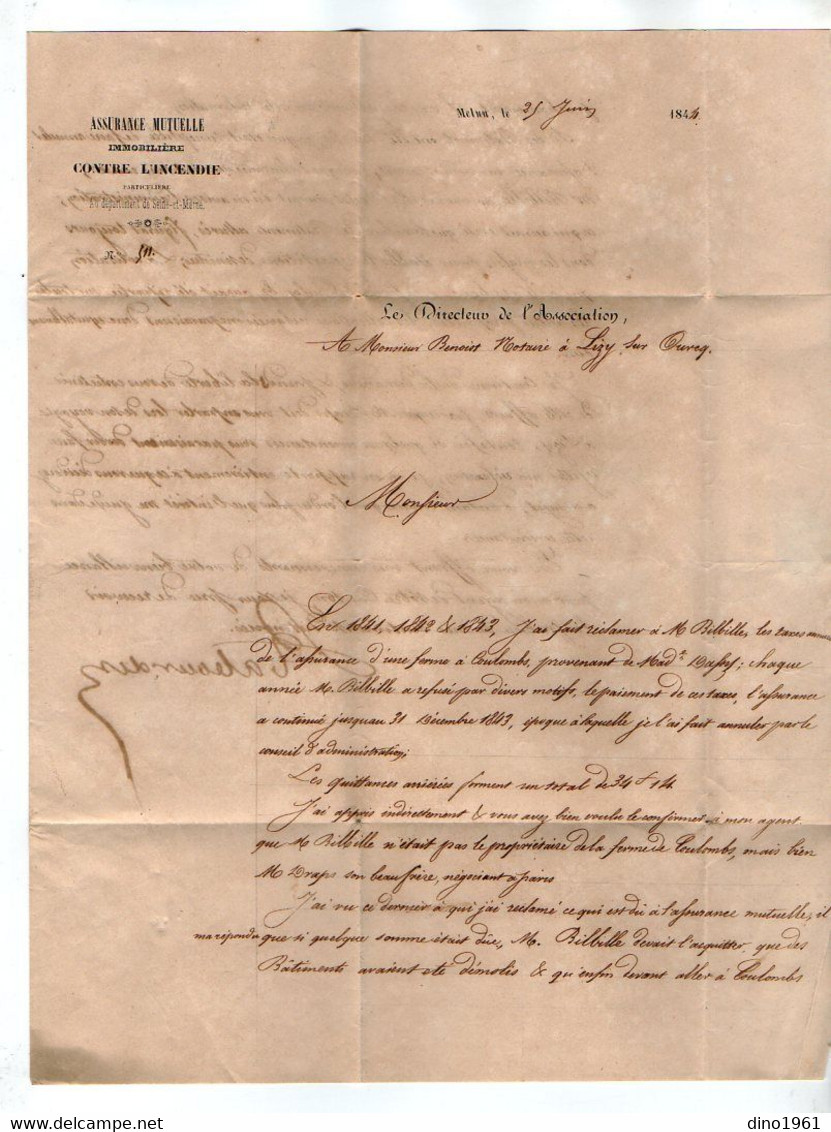 ASSURANCE MUTUELLE
IMMOBILIÈRE
CONTRE L'INCENDIE
PARTICULIÈRE
Au département de Seine-et-Marne.
N.º
Melun, le 25 Juin 1844.
Le Directeur de l'Association,
A Monsieur Benoist Notaire à Lizy sur Ourcq.
Monsieur
En 1841, 1842 & 1843, J'ai fait réclamer à M Bilbille, les taxes
de l'assurance d'une ferme à Coulombs, provenant de Mad.e ; chaque
année M. Bilbille a refusé par divers motifs, le paiement de ces taxes, l'assurance
a continué jusquau 31 Décembre 1843, époque à laquelle je l'ai fait annuler par le
conseil d'administration;
Les quittances arriérées forment un total de 34 f 14.
J'ai appris indirettement & vous avez bien voulu le confirmer à mon agent
que M Bilbille n'était pas le propriétaire de la ferme de Coulombs, mais bien
M Draps son beaufrère, négociant à paris
J'ai vu ce dernier à qui j'ai réclamé ce qui est dû à l'assurance mutuelle, il
ma répondu que si quelque somme était dûe, M. Bilbille devait l'acquitter, que des
Bâtiments avaient été démolis & qu'enfin devant aller à Coulombs
dino1961